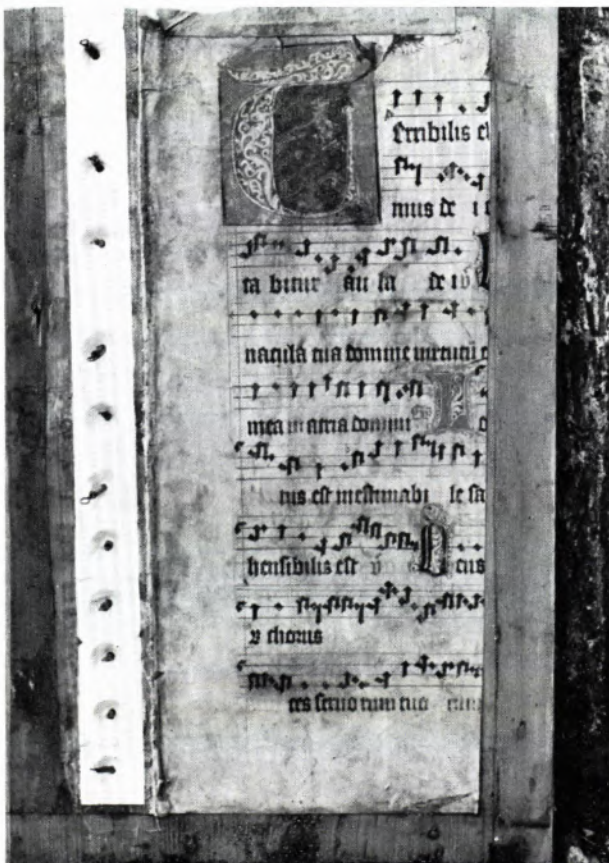 Terribilis e
mus de
ta bitur au la de i
nacula tua domine virtutū
mea in atria domini
tus est inestimabi le sa
hensibilis est
v chorus
ces servo rum tuo rum